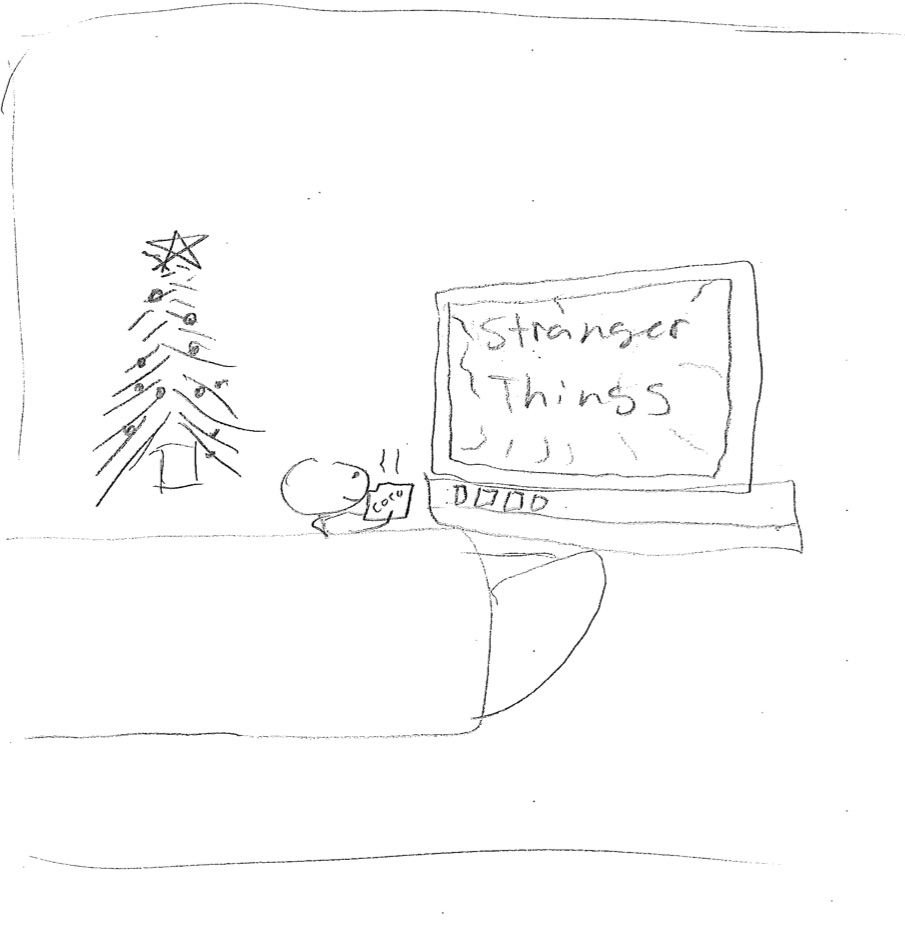 Stranger
Things
coco